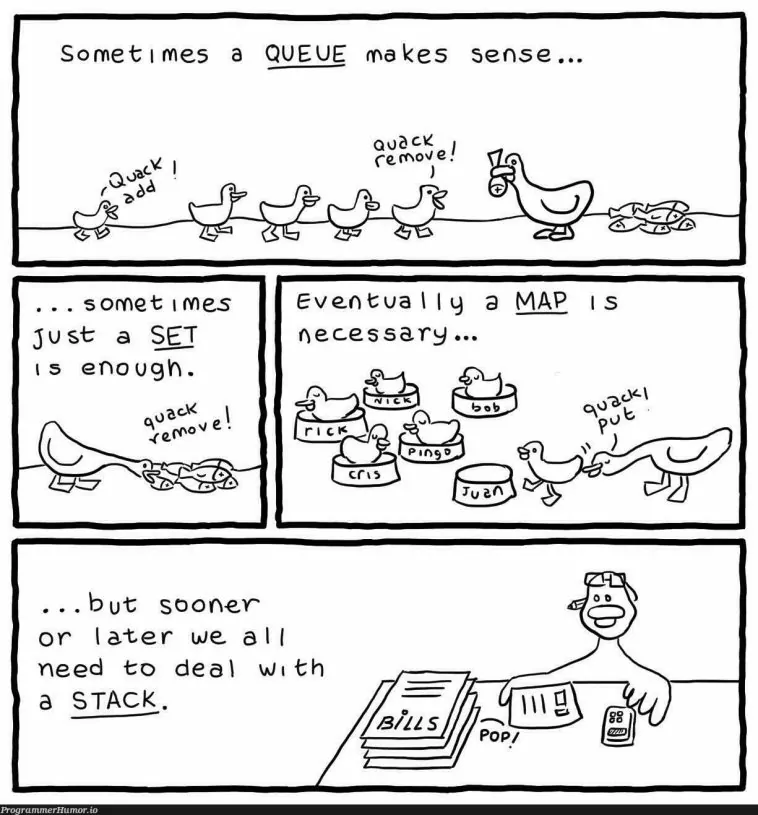 Sometimes a QUEUE makes sense...
Quack !
add
Quack
remove!
...sometimes
just a SET
is enough.
quack
remove!
Eventually a MAP is
necessary...
Nick
bob
rick
Pingo
cris
Juan
quack!
put
...but sooner
or later we all
need to deal with
a STACK.
BiLLS
POP!
ProgrammerHumor.io